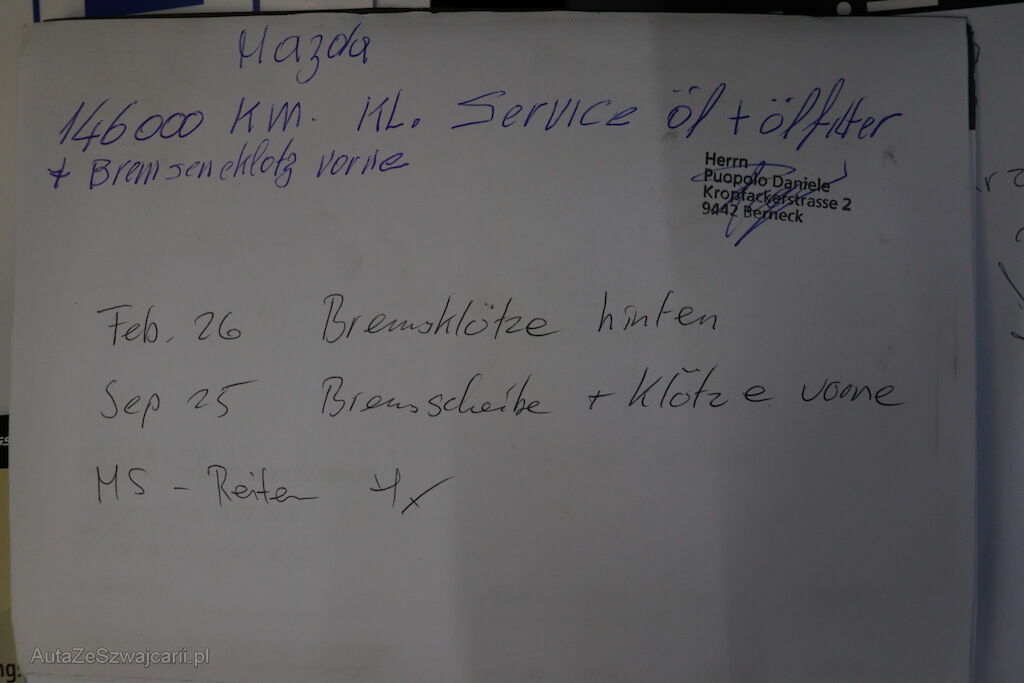 Mazda
146000 KM. KL. Service öl + ölfilter
+ Bremseneklotz vorne
Herrn
Puopolo Daniele
Kropfackerstrasse 2
9442 Berneck
Feb. 26 Bremsklötze hinten
Sep 25 Bremsscheibe + Klötze vorne
MS - Reifen 4x
AutaZeSzwajcarii.pl